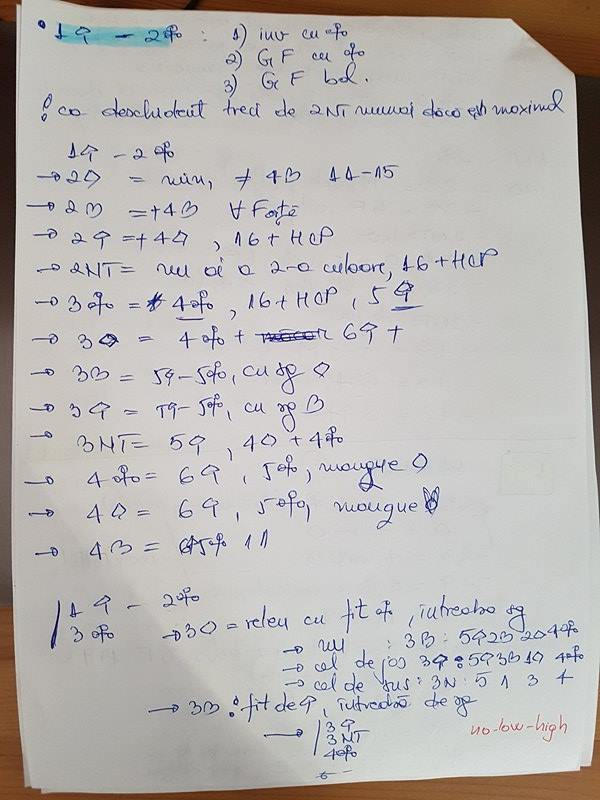 • 1♠ - 2♣ : 1) inv cu ♣
2) GF cu ♣
3) GF bal.
! ca deschident treci de 2NT numai dacă ești maximal
1♠ - 2♣
→ 2♦ = min, ≠ 4♥ 11-15
→ 2♥ = +4♥ ∀ Forță
→ 2♠ = +4♦, 16+HCP
→ 2NT = nu ai a 2-a culoare, 16+HCP
→ 3♣ = 4♣, 16+HCP, 5♠
→ 3♦ = 4♣ + 6♠ +
→ 3♥ = 5♠-5♣, cu sg ♦
→ 3♠ = 5♠-5♣, cu sg ♥
→ 3NT = 5♠, 4♦ + 4♣
→ 4♣ = 6♠, 5♣, mangue ♦
→ 4♦ = 6♠, 5♣, mangue ♥
→ 4♥ = 5♣ 11
1♠ - 2♣
3♣ → 3♦ = releu cu fit ♣, întreabă sg
→ nu : 3♥ : 5♠ 2♥ 2♦ 4♣
→ cel de jos 3♠ : 5♠ 3♥ 1♦ 4♣
→ cel de sus : 3N : 5 1 3 4
→ 3♥ : fit de ♠, întreabă de sg
→ 3♠
3NT
4♣
no-low-high